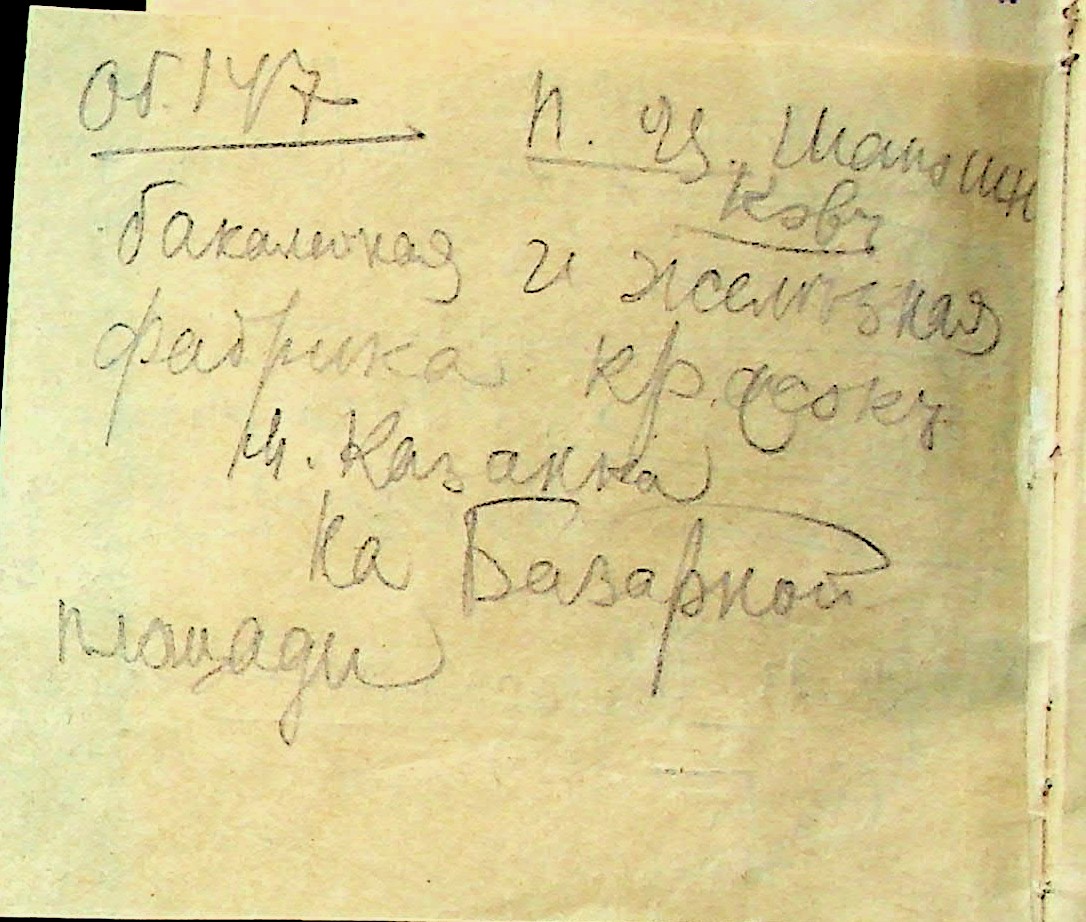 Об. 147
П. Ц. Шапошни
ковъ
бакалейная и желѣзная
фабрика кр.
м. Казанка
на Базарной
площади